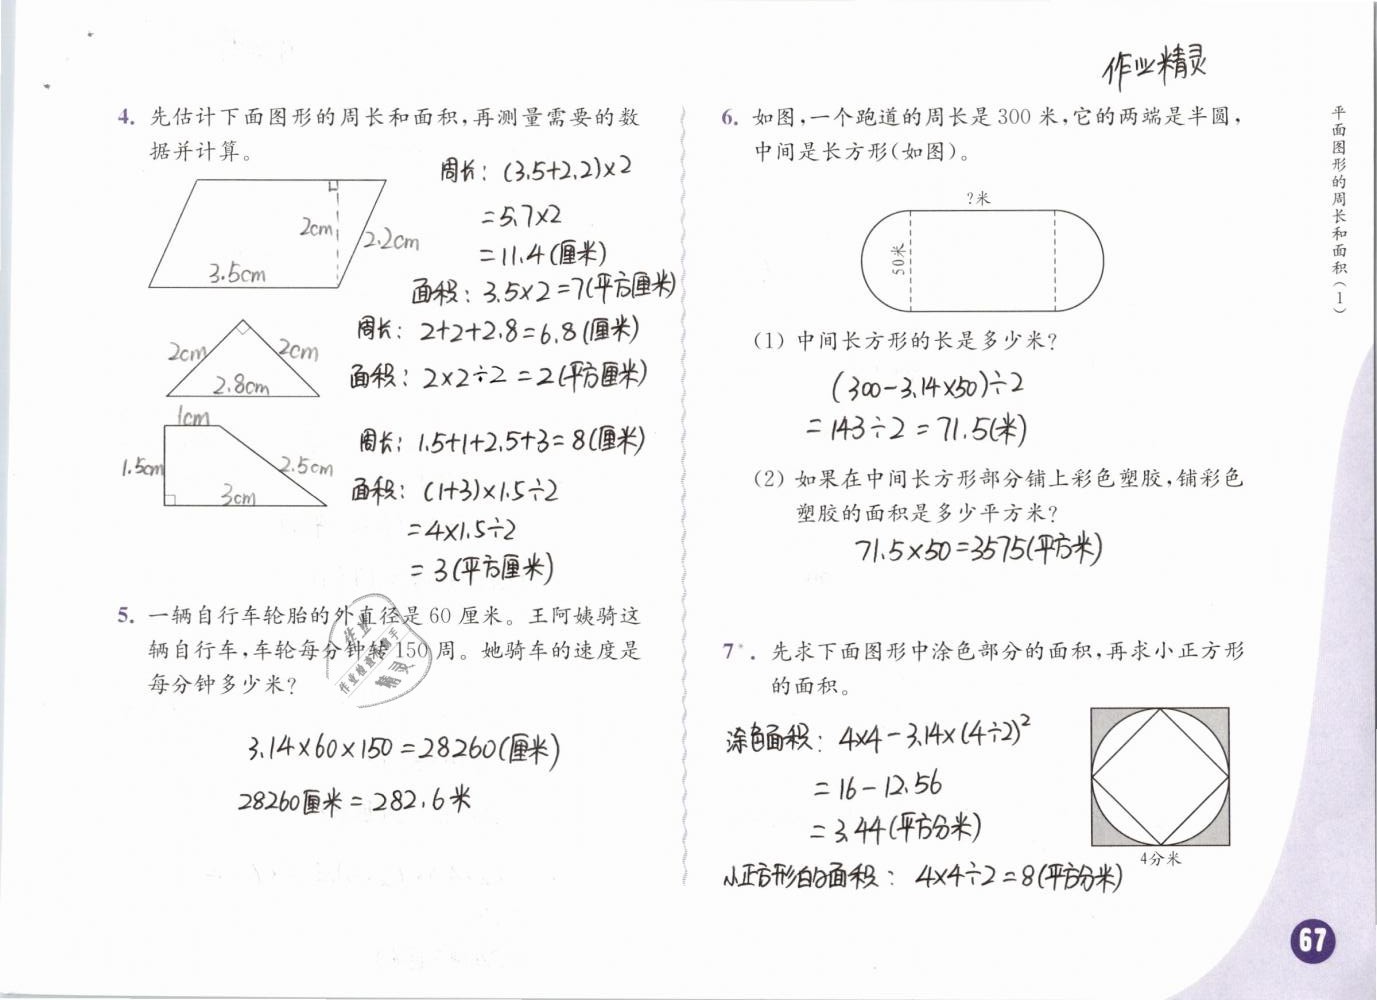 作业精灵
4. 先估计下面图形的周长和面积,再测量需要的数
据并计算。
周长: (3.5+2.2)×2
=5.7×2
=11.4(厘米)
面积: 3.5×2=7(平方厘米)
2cm
2.2cm
3.5cm
周长: 2+2+2.8=6.8(厘米)
面积: 2×2÷2=2(平方厘米)
2cm
2cm
2.8cm
1cm
1.5cm
2.5cm
3cm
周长: 1.5+1+2.5+3=8(厘米)
面积: (1+3)×1.5÷2
=4×1.5÷2
=3(平方厘米)
5. 一辆自行车轮胎的外直径是 60 厘米。王阿姨骑这
辆自行车,车轮每分钟转 150 周。她骑车的速度是
每分钟多少米?
作业
作业检查小助手
精灵
3.14×60×150=28260(厘米)
28260厘米=282.6米
6. 如图,一个跑道的周长是 300 米,它的两端是半圆,
中间是长方形(如图)。
?米
50米
(1) 中间长方形的长是多少米?
(300-3.14×50)÷2
=143÷2=71.5(米)
(2) 如果在中间长方形部分铺上彩色塑胶,铺彩色
塑胶的面积是多少平方米?
71.5×50=3575(平方米)
7*. 先求下面图形中涂色部分的面积,再求小正方形
的面积。
涂色面积: 4×4-3.14×(4÷2)²
=16-12.56
=3.44(平方分米)
小正方形的面积: 4×4÷2=8(平方分米)
4分米
平面图形的周长和面积(1)
67